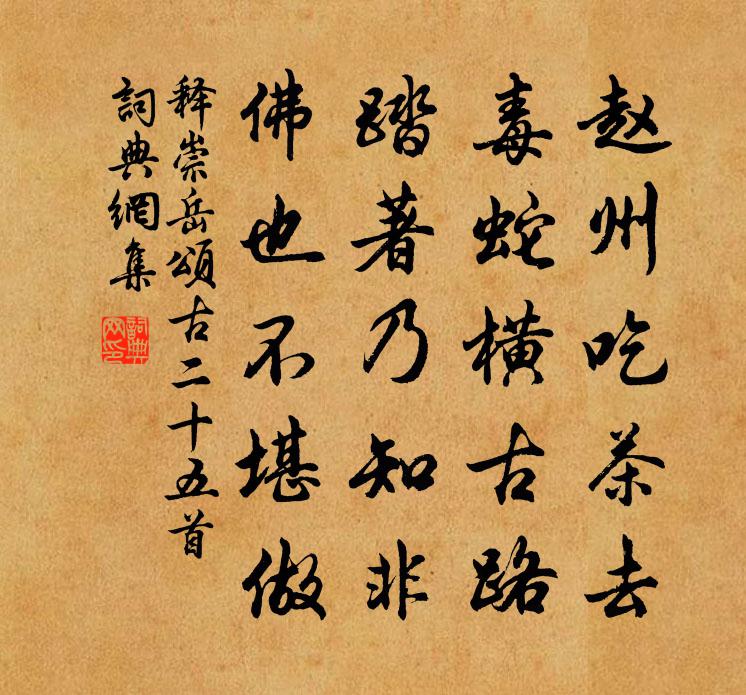 赵州吃茶去
毒蛇横古路
踏著乃知非
佛也不堪做
释崇岳頌古二十五首
詞典網集
詞典网印